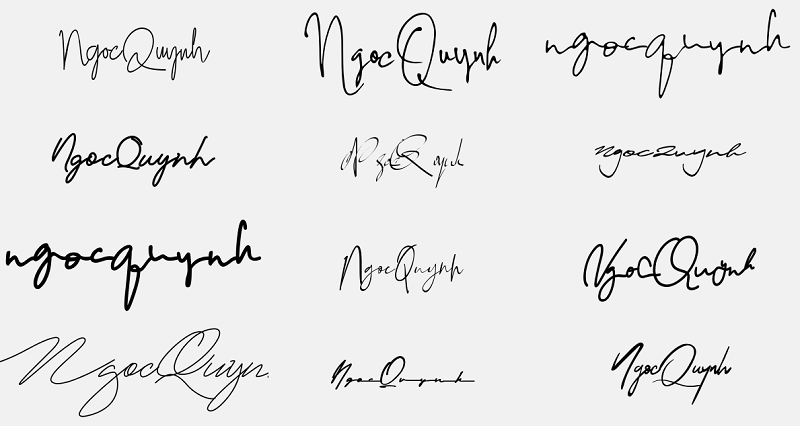 NgocQuynh NgocQuynh ngocquynh
NgocQuynh NgocQuynh ngocquynh
ngocquynh NgocQuynh NgocQuynh
NgocQuyn. NgocQuynh NgocQuynh